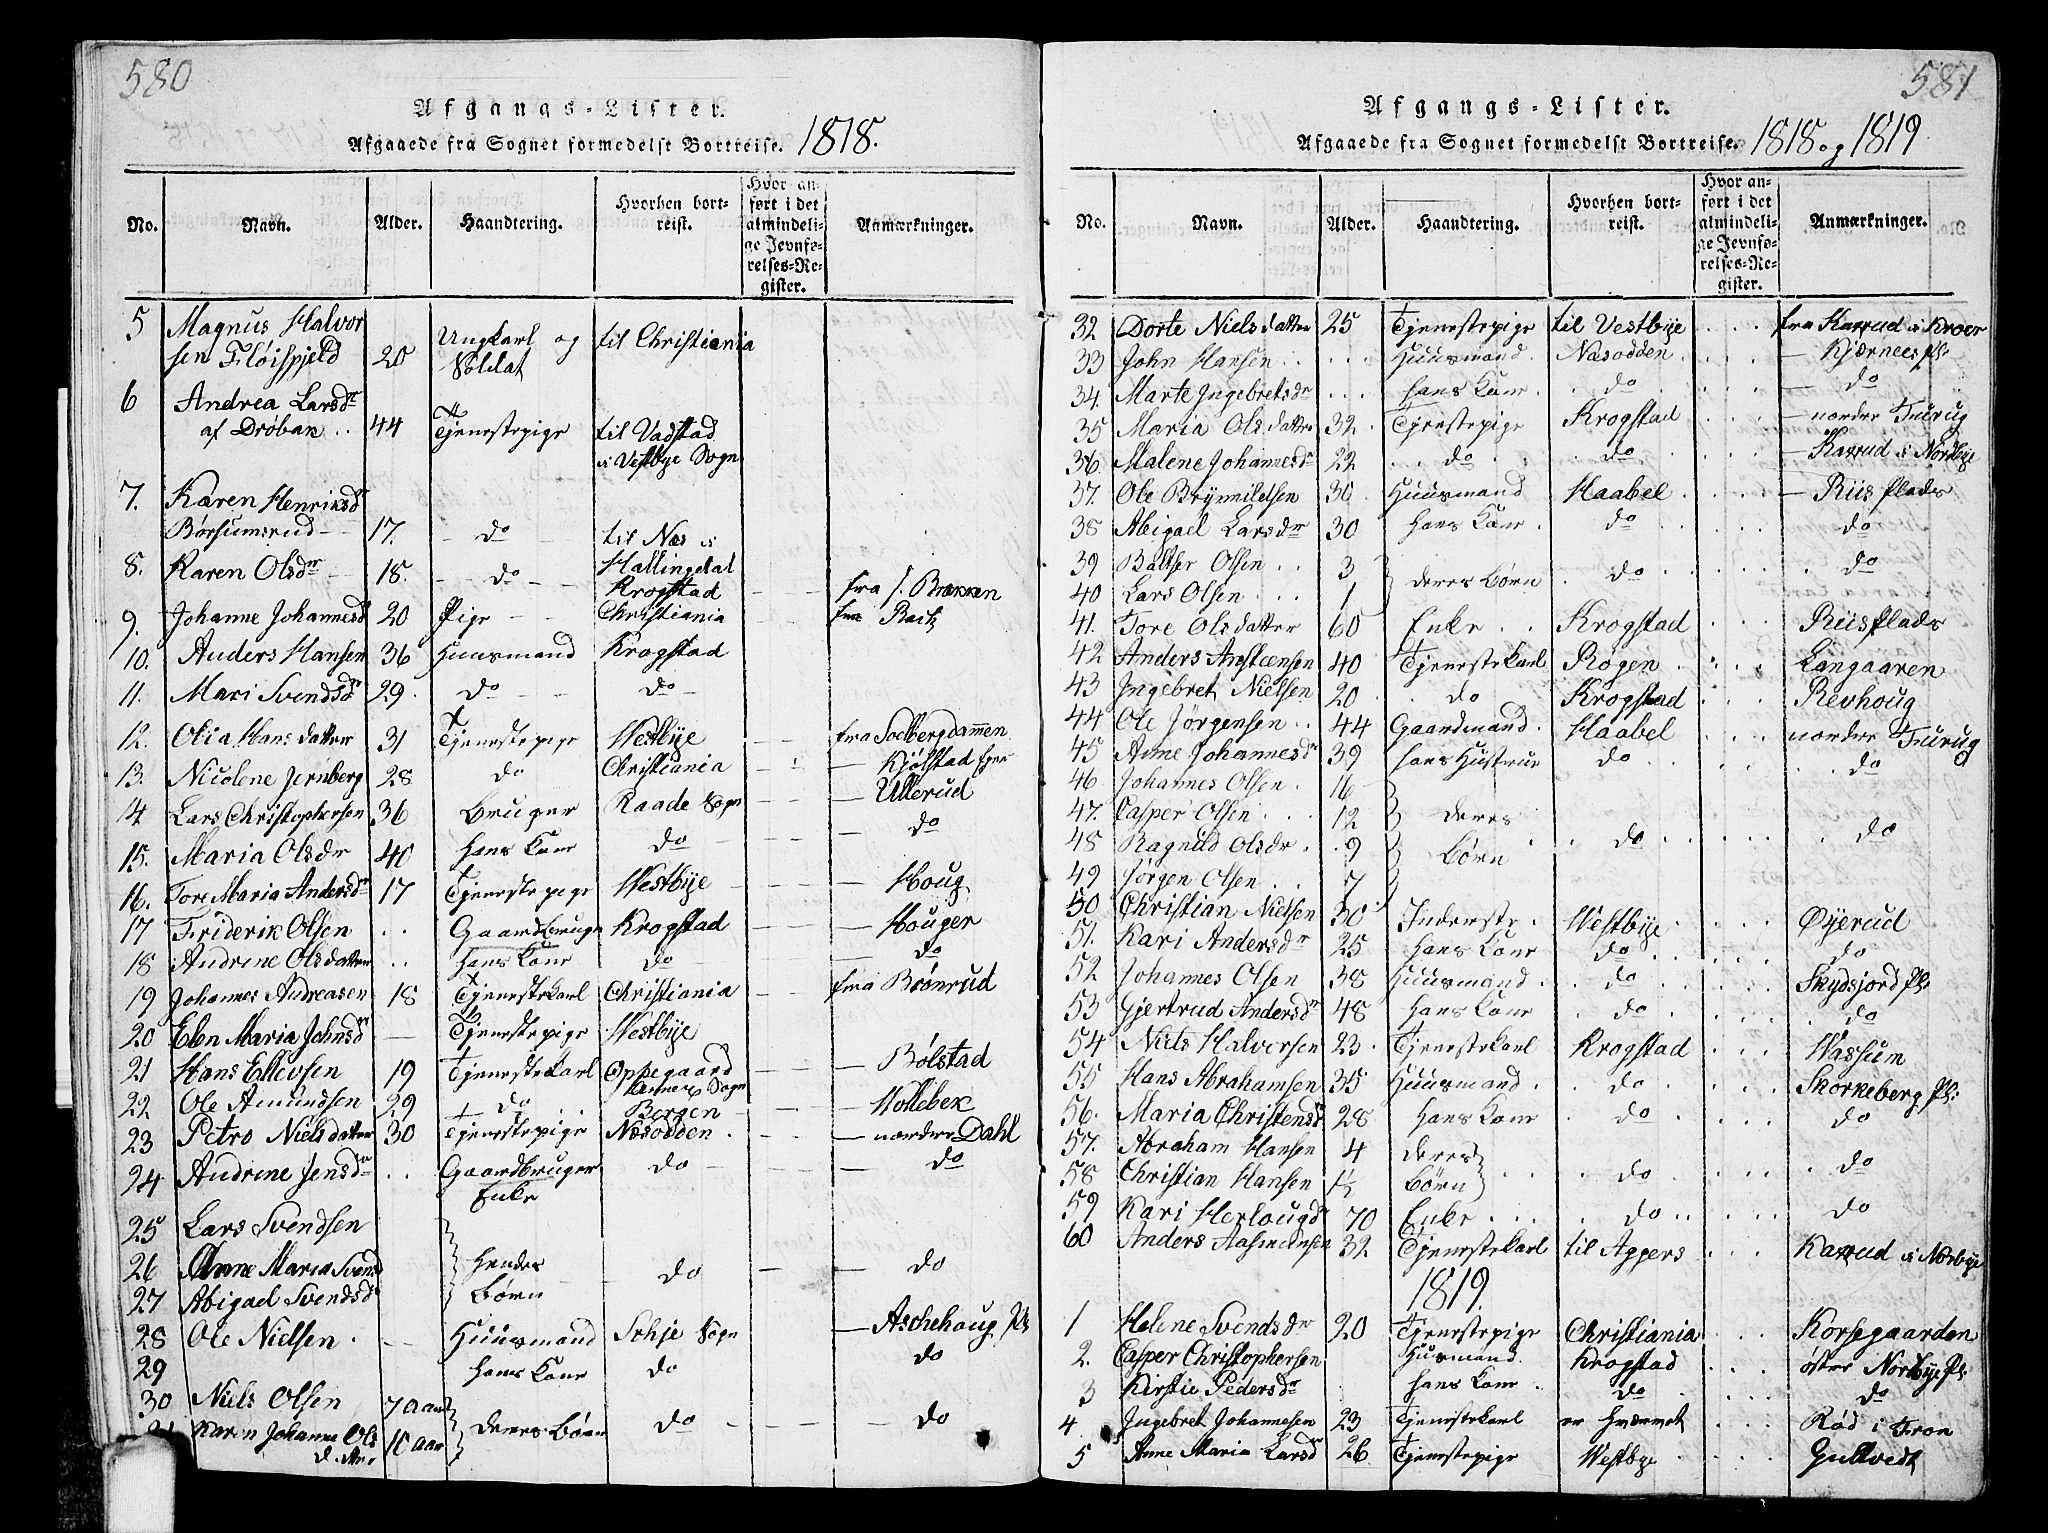 580
Afgangs-Lister.
Afgaaede fra Sognet formedelst Bortreise. 1818.
No. Navn. Alder. Haandtering. Hvorhen bortreist. Hvor anført i det almindelige Jevnførelses-Register. Anmærkninger.
5 Magnus Halvor Ungkarl og til Christiania
sen Fløisfjeld 20 Soldat
6 Andrea Larsdr
af Drøbak .. 44 Tjenestepige til Vadstad
i Vestbye Sogn
7. Karen Henriksdr
Børsumsrud 17. do til Næs i
8. Karen Olsdr 18. do Hallingdal
Krogstad fra s. Brekken
9. Johanne Johannesd 20 Pige Christiania fra Bach
10. Anders Hansen 36 Huusmand Krogstad
11. Mari Svendsdr 29. do do
12. Olia Hansdatter 31 Tjenestepige Westbye fra Sodbergdammen
13. Nicolene Jernberg 28 do Christiania Kjølstad
14 Lars Christophersen 36 Bruger Raade Sogn Ullerud
15. Maria Olsdr 40 hans Kone do do
16. Tore Maria Andersdr 17 Tjenestepige Westbye Houg
17 Friderik Olsen .. Gaardbruger Krogstad Houger
18 Andrine Olsdatter .. hans Kone do do
19 Johannes Andreasen 18 Tjenestekarl Christiania fra Brønrud
20 Elen Maria Johnsdr Tjenestepige Westbye
21 Hans Ellevsen 19 Tjenestekarl Oppegaard Bølstad
Annex Sogn
22 Ole Amundsen 29 do Bergen Hollebek
23 Petro Nielsdatter 30 Tjenestepige Næsodden nordre Dahl
24 Andrine Jensdr .. Gaardbruger do do
Enke
25 Lars Svendsen
26 Anne Maria Svend hendes do do
27 Abigael Svendsd Børn
28 Ole Nielsen Huusmand Sohje Sogn Aschehoug Pl
29 hans Kone do do
30 Niels Olsen 7 aar
Karen Johanne Ols 10 aar deres Børn do do
581
Afgangs-Lister.
Afgaaede fra Sognet formedelst Bortreise. 1818 og 1819
No. Navn. Alder. Haandtering. Hvorhen bortreist. Hvor anført i det almindelige Jevnførelses-Register. Anmærkninger.
32 Dorte Nielsdatter 25 Tjenestepige til Vestbye fra Karrud i Kroer
33 John Hansen Huusmand Nasodden Kjærnes Pl:
34. Marte Ingebretsdr hans Kone do do
35 Maria Olsdatter 32 Tjenestepige Krogstad nordre Furug
36. Malene Johannesdr 22 do do Karrud i Nordbye
37. Ole Brynnildsen 30 Huusmand Haabel Riis Plads
38 Abigael Larsdr 30 hans Kone do do
39 Baltser Olsen .. 3 do
40 Lars Olsen 1 deres børn do
41. Tore Olsdatter 60 Enke .. Krogstad Riis Plads
42 Anders Amstensen 40 Tjenestekarl Røgen Langaaren
43 Ingebret Nielsen 20 do Krogstad Revhoug
44 Ole Jørgensen 44 Gaardmand Haabel nordre Furug
45 Anne Johannesdr 39 hans Hustrue do do
46 Johannes Olsen 16
47. Casper Olsen 12 deres
48 Ragnild Olsdr 9 børn do do
49 Jørgen Olsen 7
50 Christian Nielsen 30 Inderste Westbye Øyerud
51. Kari Andersdr 25 hans Kone do do
52 Johannes Olsen 38 Huusmand do Skydsjord Pl:
53 Gjertrud Andersdr 48 hans Kone do do
54 Niels Halvorsen 23 Tjenestekarl Krogstad Wassum
55 Hans Abrahamsen 35 Huusmand do Skorkeberg Pl:
56. Maria Christensdr 28 hans Kone do do
57. Abraham Hansen 4 deres
58 Christian Hansen 1½ børn do do
59 Kari Herlougdr 70 Enke do do
60 Anders Aasmunsen 32 Tjenestekarl til Aggers Karrud i Norbye
1819.
1 Helene Svendsdr 20 Tjenestepige Christiania Korsegaarden
2. Casper Christophersen Husmand Krogstad øster Nordbye Pl:
3 Kirstie Pedersdr hans Kone do do
4 Ingebret Johannesen 23 Tjenestekarl er hvervet Rød i Fron
5 Anne Maria Larsdr 26 Tjenestepige Westbye Gulkvedt